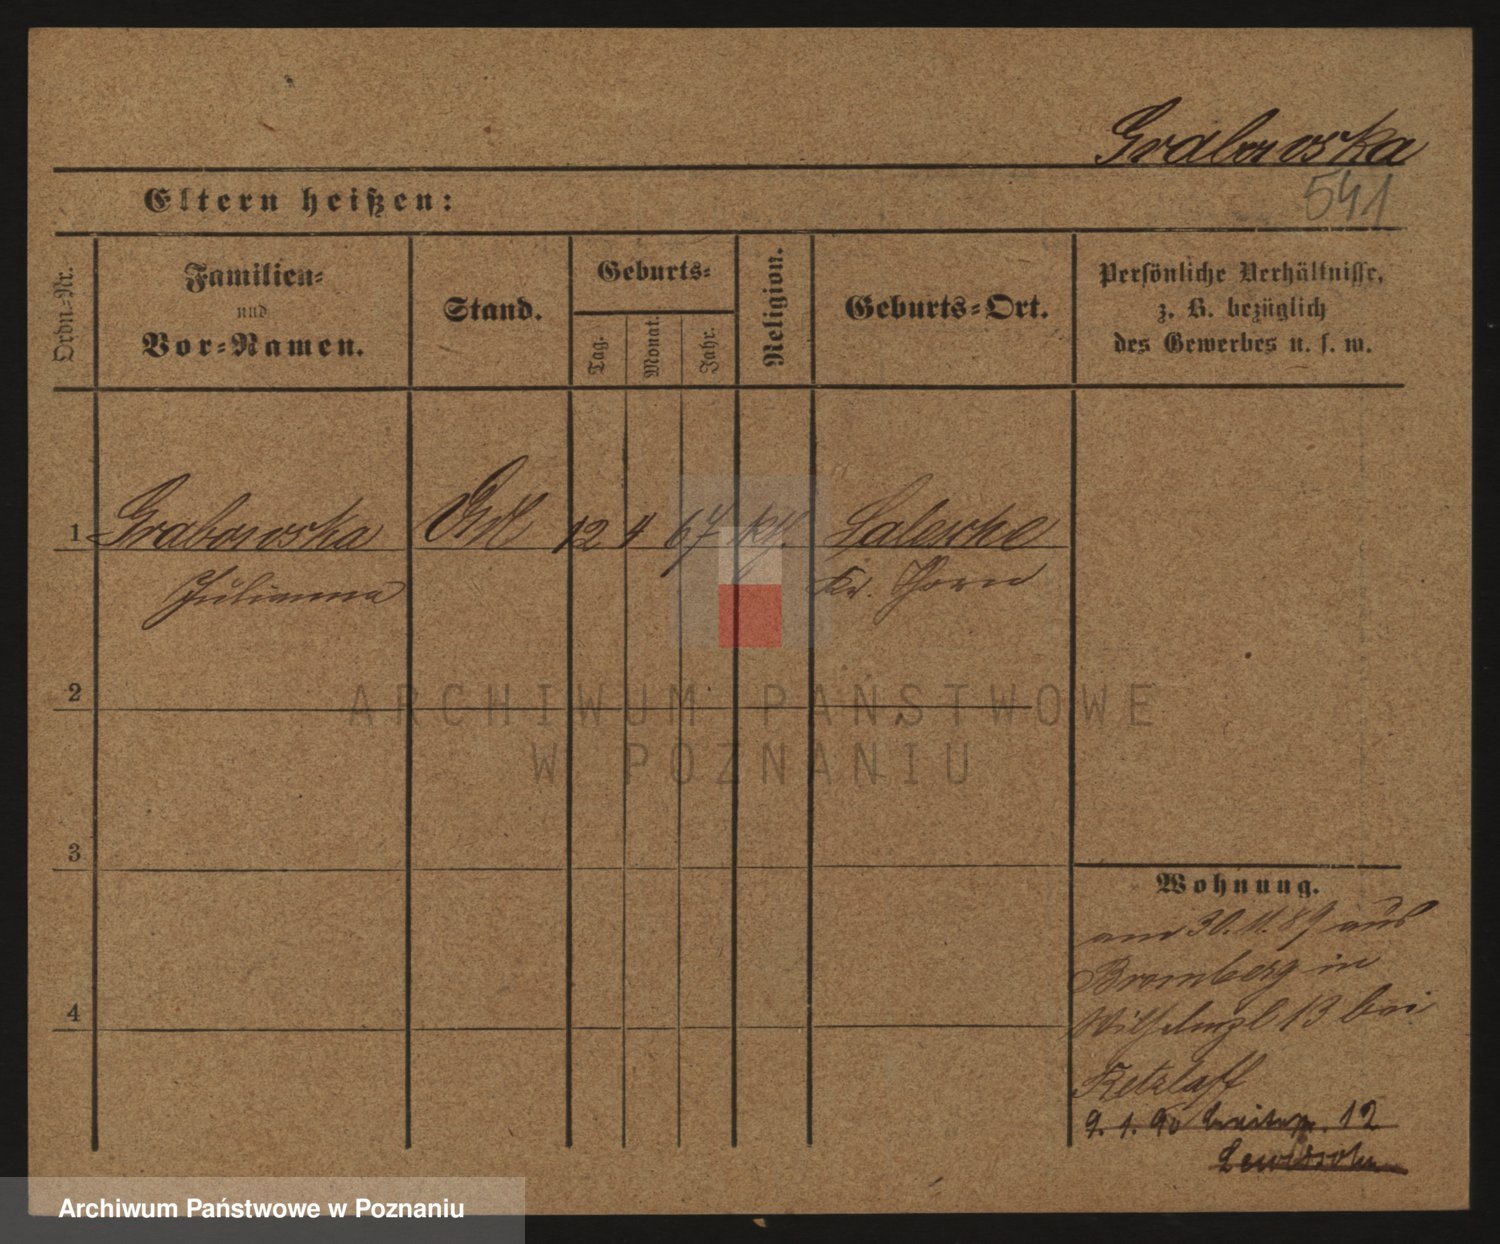 Grabowska
541
Eltern heißen:
Ordn.-Nr.
Familien-
und
Vor-Namen.
Stand.
Geburts-
Tag.
Monat.
Jahr.
Religion.
Geburts-Ort.
Persönliche Verhältnisse,
z. B. bezüglich
des Gewerbes u. s. w.
1 Grabowska 12 4 67 Saleske
Julianna Kr. Thorn
2
ARCHIWUM PAŃSTWOWE
W POZNANIU
3
4
Wohnung.
am 30.11.89 aus
Bromberg in
Wilhelmspl 13 bei
Retzlaff
9. 1. 90 12
Lewissohn
Archiwum Państwowe w Poznaniu